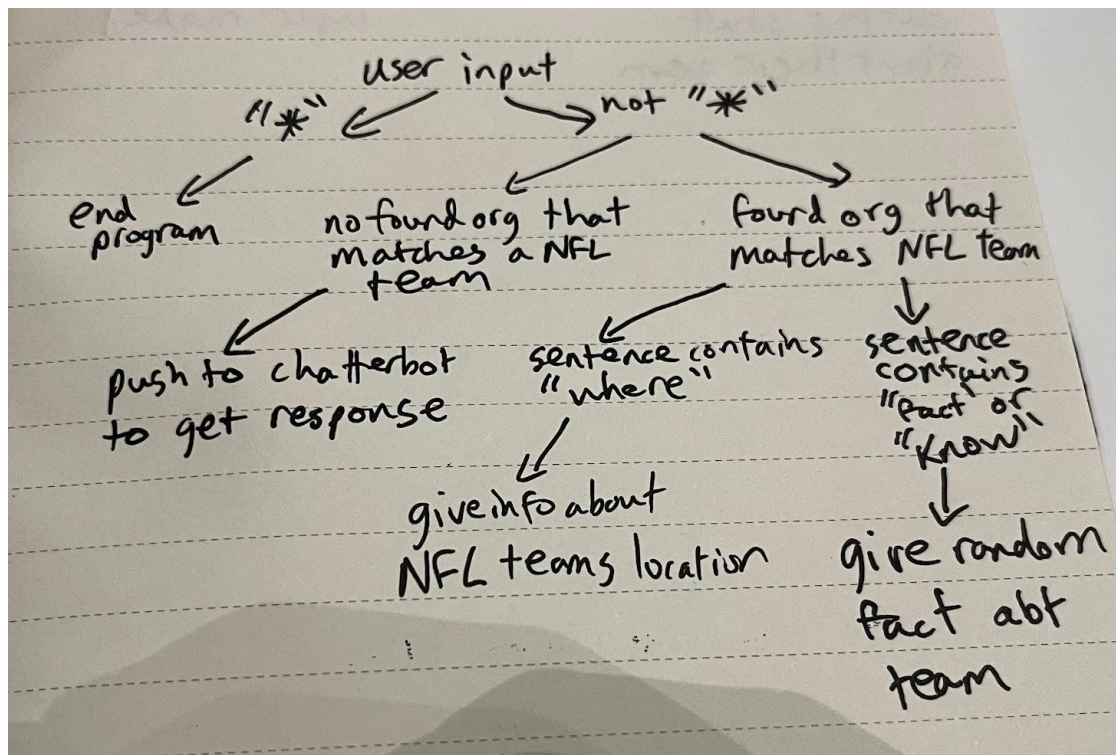 user input
"*"
not "*"
end
program
no found org that
matches a NFL
team
found org that
matches NFL team
push to chatterbot
to get response
sentence contains
"where"
sentence
contains
"fact" or
"know"
give info about
NFL teams location
give random
fact abt
team